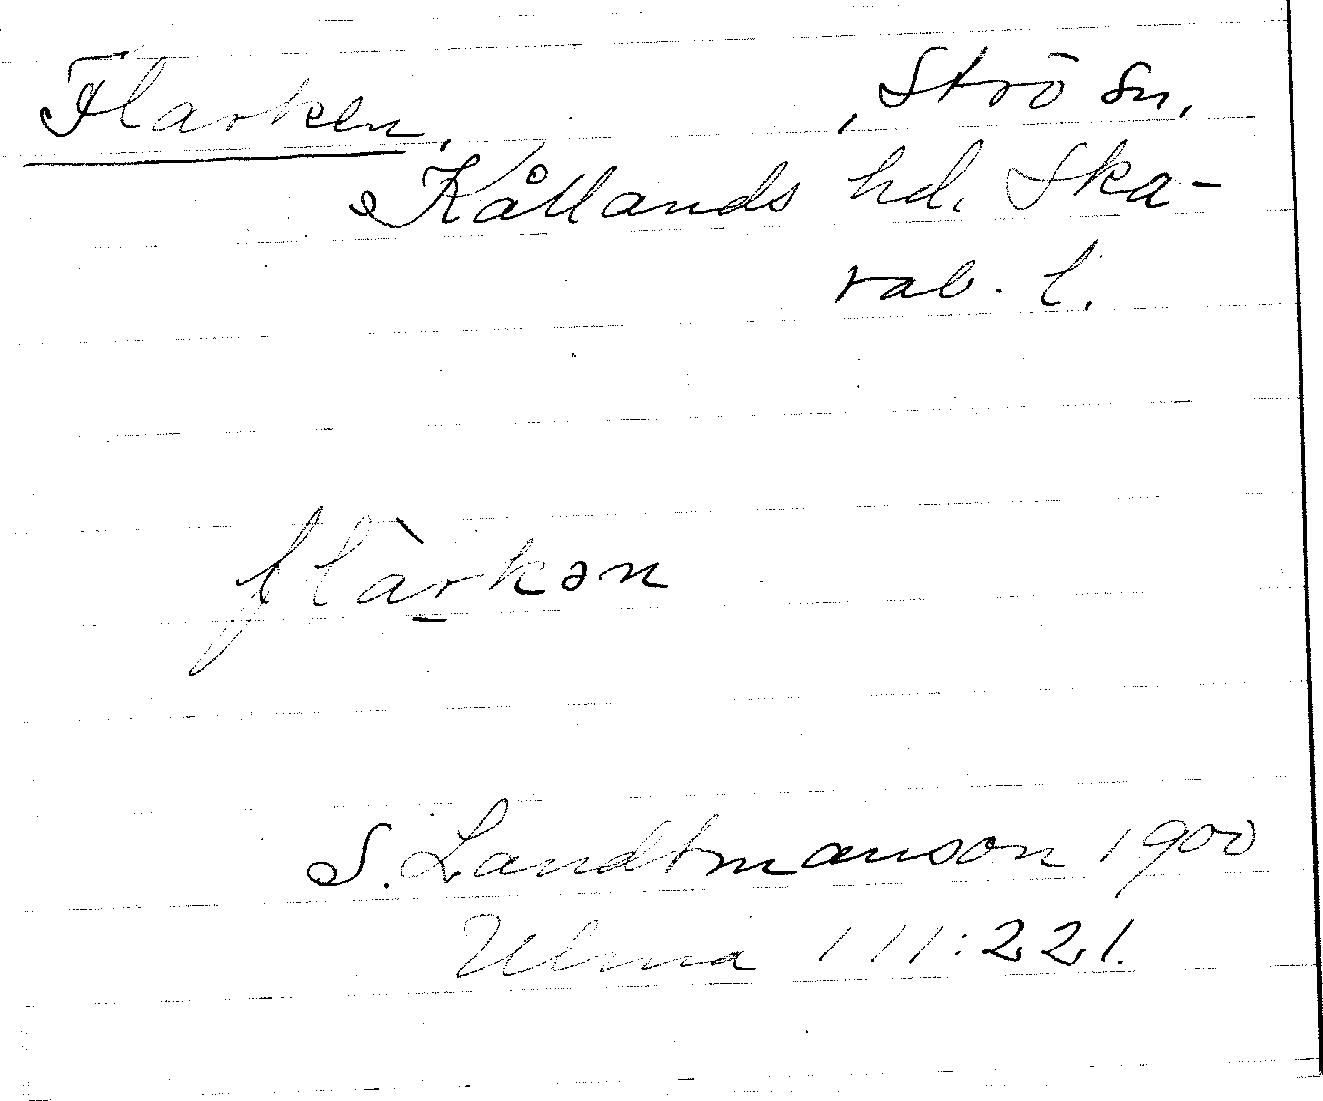 Flarken, , Strö sn,
Kållands hd. Ska-
rab. l.
flàrkən
S. Landtmanson 1900
Ulma 111:221.